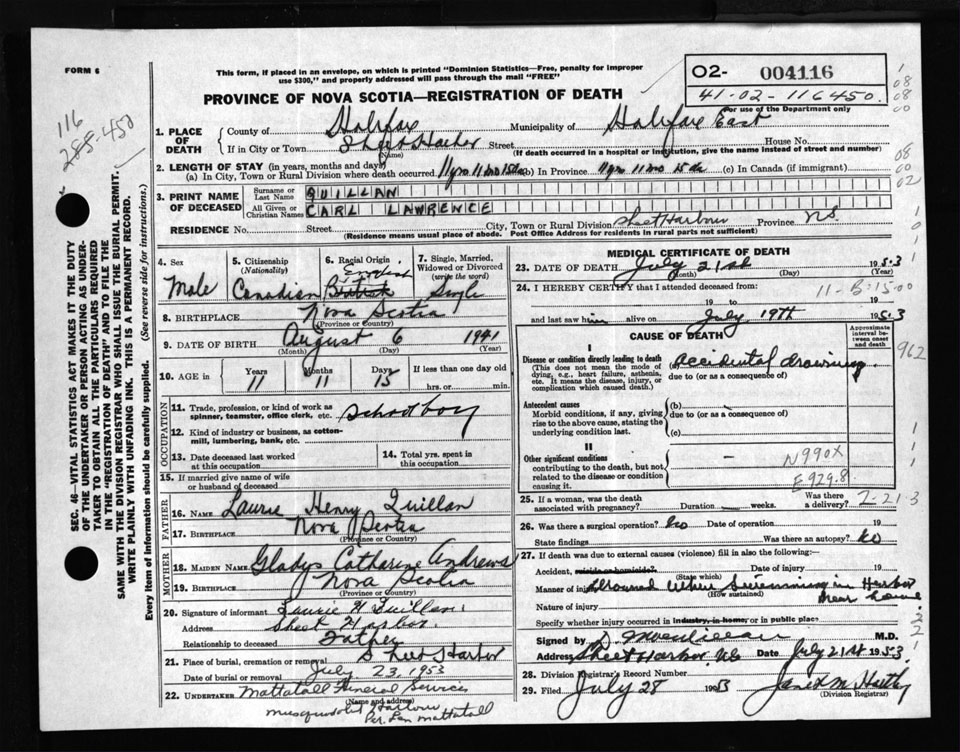 FORM 6
This form, if placed in an envelope, on which is printed "Dominion Statistics—Free, penalty for improper
use $300," and properly addressed will pass through the mail "FREE"
02- 004116
41-02-116450.
For use of the Department only
PROVINCE OF NOVA SCOTIA—REGISTRATION OF DEATH
116
285-450
SEC. 46—VITAL STATISTICS ACT MAKES IT THE DUTY
OF THE UNDERTAKER OR PERSON ACTING AS UNDER-
TAKER TO OBTAIN ALL THE PARTICULARS REQUIRED
IN THE "REGISTRATION OF DEATH" AND TO FILE THE
SAME WITH THE DIVISION REGISTRAR WHO SHALL ISSUE THE BURIAL PERMIT.
WRITE PLAINLY WITH UNFADING INK. THIS IS A PERMANENT RECORD.
Every item of Information should be carefully supplied. (See reverse side for instructions.)
1. PLACE OF DEATH
County of Halifax Municipality of Halifax East
If in City or Town Sheet Harbor Street House No.
(Name) (If death occurred in a hospital or institution, give the name instead of street and number)
2. LENGTH OF STAY (in years, months and days)
(a) In City, Town or Rural Division where death occurred 11 yrs 11 mo 15 da (b) In Province 11 yrs 11 mo 15 da (c) In Canada (if immigrant)
3. PRINT NAME OF DECEASED
Surname or Last Name QUILLAN
All Given or Christian Names CARL LAWRENCE
RESIDENCE No. Street City, Town or Rural Division Sheet Harbour Province N.S.
(Residence means usual place of abode. Post Office Address for residents in rural parts not sufficient)
4. Sex
Male
5. Citizenship (Nationality)
Canadian
6. Racial Origin
British
7. Single, Married, Widowed or Divorced (write the word)
Single
8. BIRTHPLACE Nova Scotia
(Province or Country)
9. DATE OF BIRTH August 6 1941
(Month) (Day) (Year)
10. AGE in Years 11 Months 11 Days 15 If less than one day old
hrs. or min.
OCCUPATION
11. Trade, profession, or kind of work as
spinner, teamster, office clerk, etc. School boy
12. Kind of industry or business, as cotton-
mill, lumbering, bank, etc.
13. Date deceased last worked
at this occupation
14. Total yrs. spent in
this occupation
15. If married give name of wife
or husband of deceased
FATHER
16. NAME Laurie Henry Quillan
17. BIRTHPLACE Nova Scotia
(Province or Country)
MOTHER
18. MAIDEN NAME Gladys Catharine Andrews
19. BIRTHPLACE Nova Scotia
(Province or Country)
20. Signature of informant Laurie H Quillan
Address Sheet Harbor.
Relationship to deceased Father
21. Place of burial, cremation or removal Sheet Harbor
Date of burial or removal July 23, 1953
22. UNDERTAKER Mattatall Funeral Services
(Name and address)
Musquodoboit Harbour
Per. Len Mattatall
MEDICAL CERTIFICATE OF DEATH
23. DATE OF DEATH July 21st 1953
(Month) (Day) (Year)
24. I HEREBY CERTIFY that I attended deceased from
11-B:15-00
19 to 19
and last saw him alive on July 19th 1953
CAUSE OF DEATH
Approximate interval between onset and death
I
Disease or condition directly leading to death
(This does not mean the mode of
dying, e.g., heart failure, asthenia,
etc. It means the disease, injury, or
complication which caused death.)
(a) Accidental drowning.
due to (or as a consequence of)
962
Antecedent causes
Morbid conditions, if any, giving
rise to the above cause, stating the
underlying condition last.
(b)
due to (or as a consequence of)
(c)
II
Other significant conditions
contributing to the death, but not
related to the disease or condition
causing it.
N990X
E929.8
25. If a woman, was the death
associated with pregnancy? Duration weeks. Was there a delivery?
7-21-3
26. Was there a surgical operation? No Date of operation 19
State findings Was there an autopsy? No
27. If death was due to external causes (violence) fill in also the following:—
Accident, suicide or homicide? Date of injury 19
(State which)
Manner of injury Drowned when swimming in Harbor
(How sustained) near home
Nature of injury
Specify whether injury occurred in industry, in home, or in public place
Signed by M.D.
Address Sheet Harbor NS Date July 21st 1953
28. Division Registrar's Record Number
29. Filed July 28 1953
(Division Registrar)